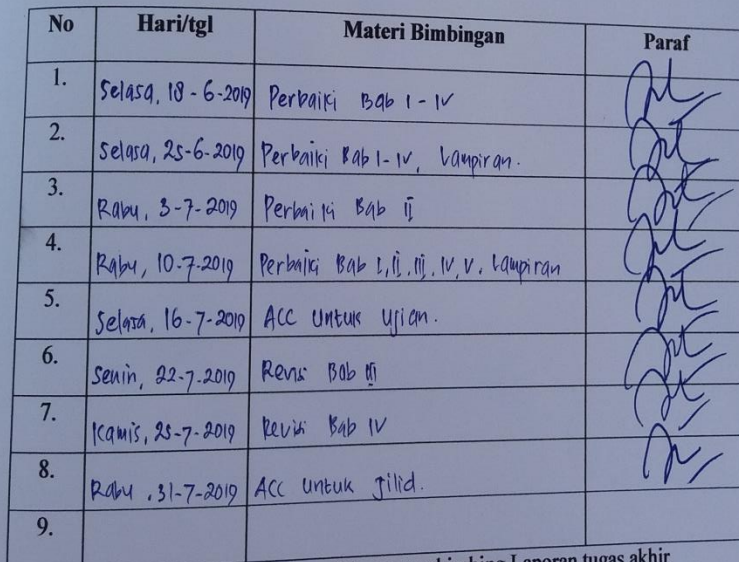 No Hari/tgl Materi Bimbingan Paraf
1. Selasa, 18-6-2019 Perbaiki Bab I - IV
2. Selasa, 25-6-2019 Perbaiki Bab I - IV, Lampiran.
3. Rabu, 3-7-2019 Perbaiki Bab II
4. Rabu, 10-7-2019 Perbaiki Bab I, II, III, IV, V, Lampiran
5. Selasa, 16-7-2019 ACC untuk ujian.
6. Senin, 22-7-2019 Revisi Bab III
7. Kamis, 25-7-2019 Revisi Bab IV
8. Rabu, 31-7-2019 ACC untuk Jilid.
9.
Laporan tugas akhir